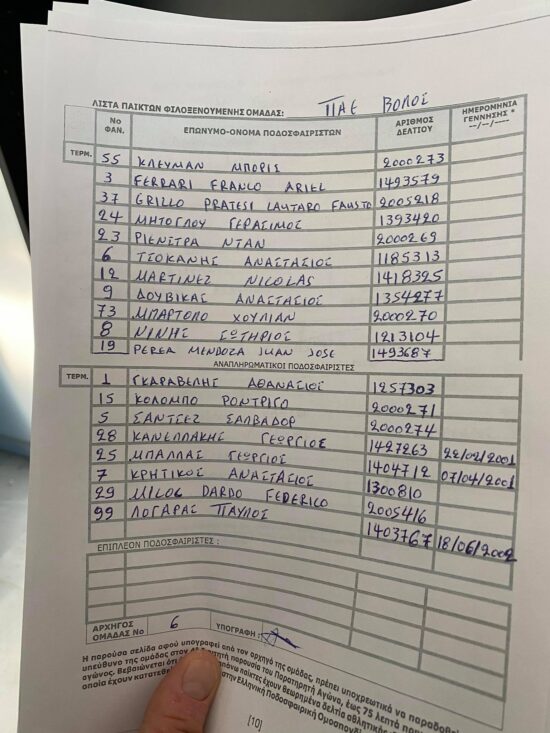 ΛΙΣΤΑ ΠΑΙΚΤΩΝ ΦΙΛΟΞΕΝΟΥΜΕΝΗΣ ΟΜΑΔΑΣ: ΠΑΕ ΒΟΛΟΣ
Νο ΦΑΝ. ΕΠΩΝΥΜΟ-ΟΝΟΜΑ ΠΟΔΟΣΦΑΙΡΙΣΤΩΝ ΑΡΙΘΜΟΣ ΔΕΛΤΙΟΥ ΗΜΕΡΟΜΗΝΙΑ ΓΕΝΝΗΣΗΣ * --/--/----
ΤΕΡΜ. 55 ΚΛΕΥΜΑΝ ΜΠΟΡΙΣ 2000273
3 FERRARI FRANCO ARIEL 1493579
37 GRILLO PRATESI LAUTARO FAUSTO 2005218
24 ΜΗΤΟΓΛΟΥ ΓΕΡΑΣΙΜΟΣ 1393420
23 ΡΙΕΝΣΤΡΑ ΝΤΑΝ 2000269
6 ΤΣΟΚΑΝΗΣ ΑΝΑΣΤΑΣΙΟΣ 1185313
12 MARTINEZ NICOLAS 1418325
9 ΔΟΥΒΙΚΑΣ ΑΝΑΣΤΑΣΙΟΣ 1354277
73 ΜΠΑΡΤΟΛΟ ΧΟΥΛΙΑΝ 2000270
8 ΝΙΝΗΣ ΣΩΤΗΡΙΟΣ 1213104
19 PEREA MENDOZA JUAN JOSE 1493687
ΑΝΑΠΛΗΡΩΜΑΤΙΚΟΙ ΠΟΔΟΣΦΑΙΡΙΣΤΕΣ
ΤΕΡΜ. 1 ΓΚΑΡΑΒΕΛΗΣ ΑΘΑΝΑΣΙΟΣ 1257303
15 ΚΟΛΟΜΠΟ ΡΟΝΤΡΙΓΟ 2000271
5 ΣΑΝΤΣΕΖ ΣΑΛΒΑΔΟΡ 2000274
28 ΚΑΝΕΛΛΑΚΗΣ ΓΕΩΡΓΙΟΣ 1427263 22/02/2001
25 ΜΠΑΛΛΑΣ ΓΕΩΡΓΙΟΣ 1404712 07/04/2001
7 ΚΡΗΤΙΚΟΣ ΑΝΑΣΤΑΣΙΟΣ 1300810
29 MILOC DARDO FEDERICO 2005416
99 ΛΟΓΑΡΑΣ ΠΑΥΛΟΣ 1403767 18/06/2002
ΕΠΙΠΛΕΟΝ ΠΟΔΟΣΦΑΙΡΙΣΤΕΣ :
ΑΡΧΗΓΟΣ ΟΜΑΔΑΣ Νο 6 ΥΠΟΓΡΑΦΗ :
Η παρούσα σελίδα αφού υπογραφεί από τον αρχηγό της ομάδας, πρέπει υποχρεωτικά να παραδοθεί
υπεύθυνο της ομάδας στον παρουσία του Παρατηρητή Αγώνα, έως 75 λεπτά
αγώνος. Βεβαιώνεται ότι παίκτες έχουν θεωρημένα δελτία αθλητικής
οποία έχουν στην Ελληνική Ποδοσφαιρική
[10]